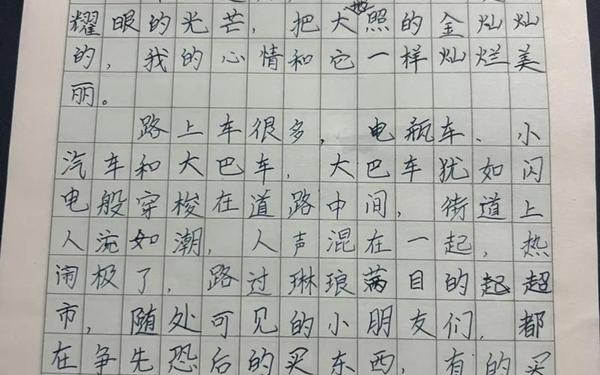 耀眼的光芒，把大地照的金灿灿
的，我的心情和它一样灿烂美
丽。
路上车很多，电瓶车、小
汽车和大巴车，大巴车犹如闪
电般穿梭在道路中间，街道上
人流如潮，人声混在一起，热
闹极了，路过琳琅满目的超
市，随处可见的小朋友们，都
在争先恐后的买东西，有的买